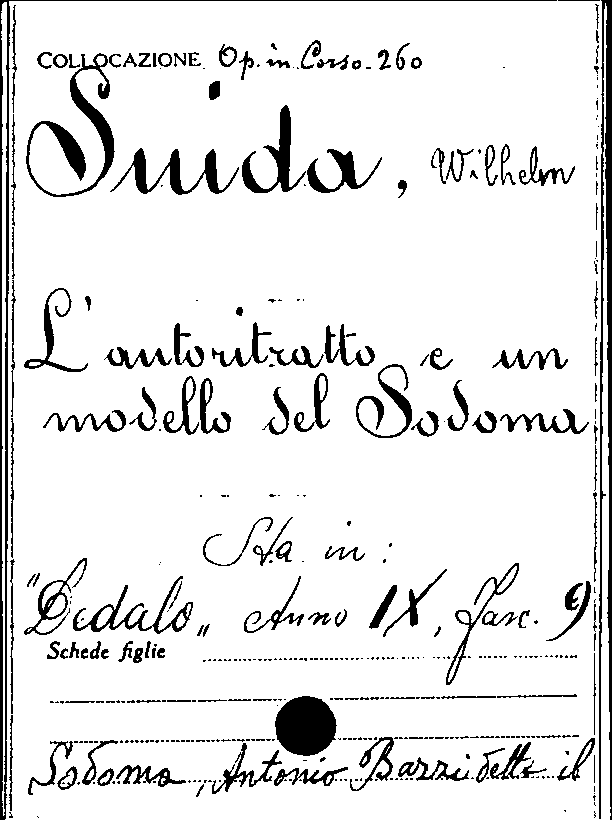 COLLOCAZIONE Op. in Corso - 260
Suida, Wilhelm
L'autoritratto e un
modello del Sodoma
Sta in:
"Dedalo„ Anno IX, Fasc. 9
Schede figlie
Sodoma, Antonio Bazzi detto il